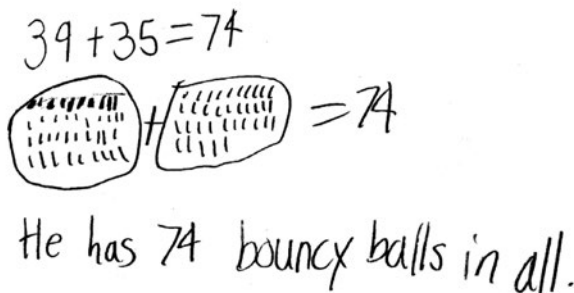 39+35=74
+ =74
He has 74 bouncy balls in all.